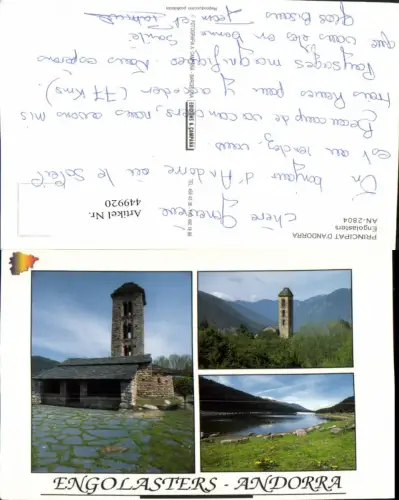 PRINCIPAT D'ANDORRA
Engolasters
AN-2804
Chère Geneviève
Un bonjour d'Andorre où le Soleil
est au rendez-vous
Beaucoup de vacanciers, nous avons mis
trois heures pour y accéder (77 Kms).
Paysages magnifiques. Nous espérons
que vous êtes en bonne Santé
Gros Bisous Jean et
Artikel Nr.
449920
ENGOLASTERS - ANDORRA